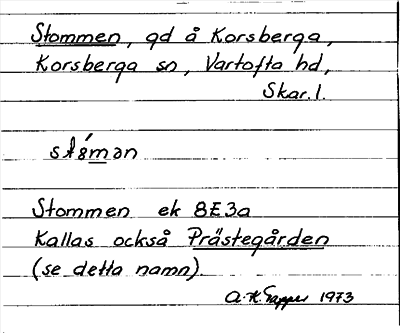 Stommen, gd å Korsberga,
Korsberga sn, Vartofta hd,
Skar. l.
Stommen ek 8E3a
Kallas också Prästegården
(se detta namn).
1973